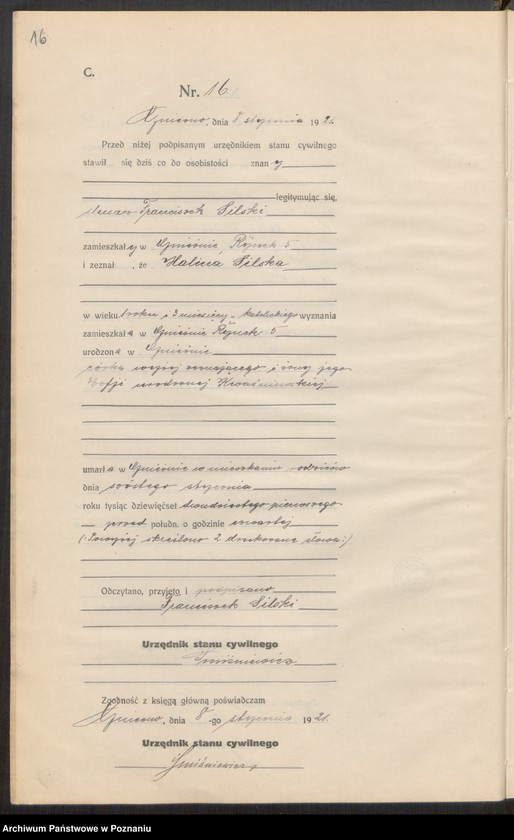 16
C.
Nr. 16
Gniezno, dnia 8 stycznia 1921.
Przed niżej podpisanym urzędnikiem stanu cywilnego
stawił się dziś co do osobistości znany
legitymując się,
Franciszek Silski
zamieszkały w Gnieźnie, Rynek 5
i zeznał, że Halina Silska
w wieku 1 roku i 2 miesięcy, katolickiego wyznania
zamieszkała w Gnieźnie Rynek 5
urodzona w Gnieźnie
córka wyżej zeznającego i żony jego
Zofji urodzonej
umarła w Gnieźnie w mieszkaniu rodziców
dnia szóstego stycznia
roku tysiąc dziewięćset dwudziestego pierwszego
przed połudn. o godzinie czwartej
(:Powyżej skreślono 2 drukowane słowa:)
Odczytano, przyjęto i podpisano
Franciszek Silski
Urzędnik stanu cywilnego
Zgodność z księgą główną poświadczam
Gniezno, dnia 8-go stycznia 1921.
Urzędnik stanu cywilnego
Archiwum Państwowe w Poznaniu